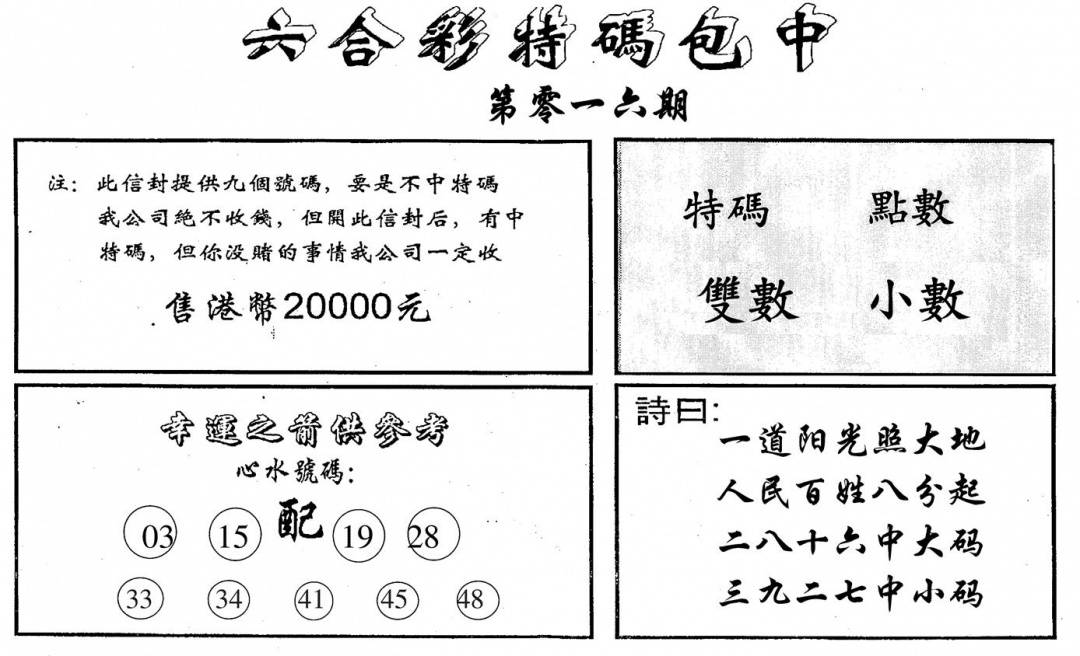 六合彩特碼包中
第零一六期
注：此信封提供九個號碼，要是不中特碼
我公司絕不收錢，但開此信封后，有中
特碼，但你没賭的事情我公司一定收
售港幣20000元
特碼 點數
雙數 小數
幸運之箭供參考
心水號碼：
配
03 15 19 28
33 34 41 45 48
詩曰：
一道阳光照大地
人民百姓八分起
二八十六中大码
三九二七中小码